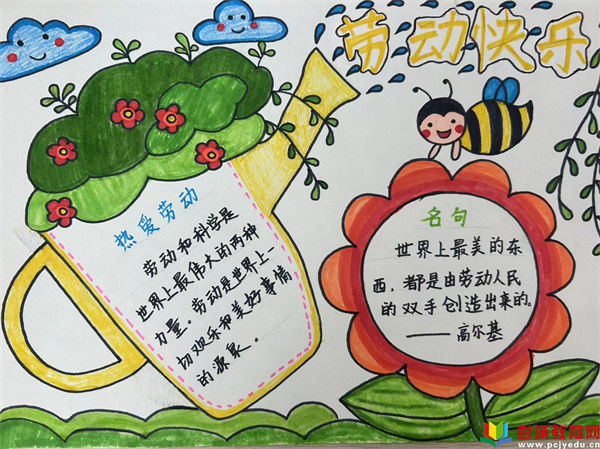 劳动快乐
热爱劳动
劳动和科学是
世界上最伟大的两种
力量。劳动是世界上一
切欢乐和美好事情
的源泉。
名句
世界上最美的东
西，都是由劳动人民
的双手创造出来的。
——高尔基
彭城教育网
www.pcjyedu.cn